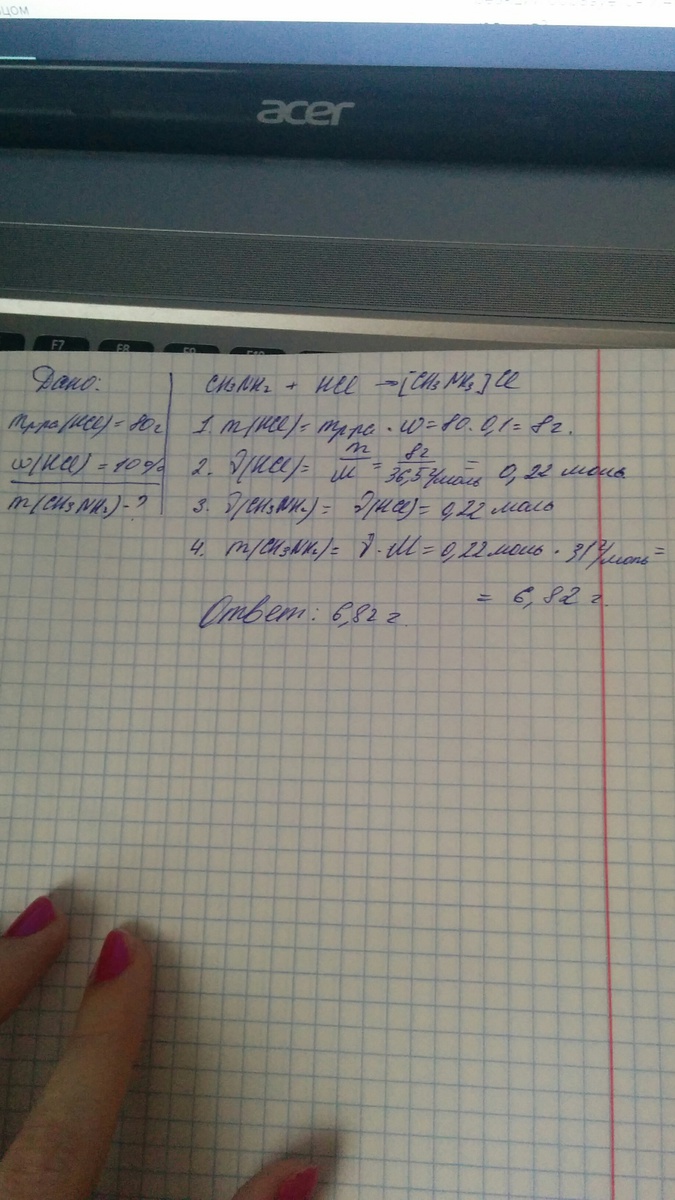 acer
F7
F8
F9
F10
Дано:
mр-ра(HCl) = 80г
ω(HCl) = 10%
m(CH3NH2) - ?
CH3NH2 + HCl → [CH3NH3]Cl
1. m(HCl) = mр-ра · ω = 80 · 0,1 = 8г.
2. ν(HCl) = m/M = 8г/36,5г/моль = 0,22 моль
3. ν(CH3NH2) = ν(HCl) = 0,22 моль
4. m(CH3NH2) = ν · M = 0,22 моль · 31г/моль =
= 6,82 г.
Ответ: 6,82 г.